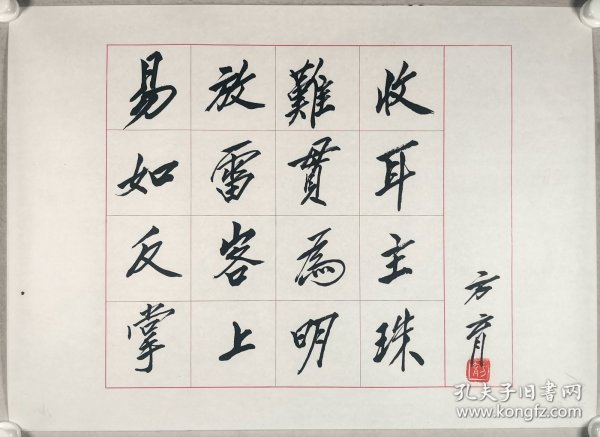 易放難收
如雷貫耳
反客為主
掌上明珠
方育
孔夫子旧书网
www.kongfz.com